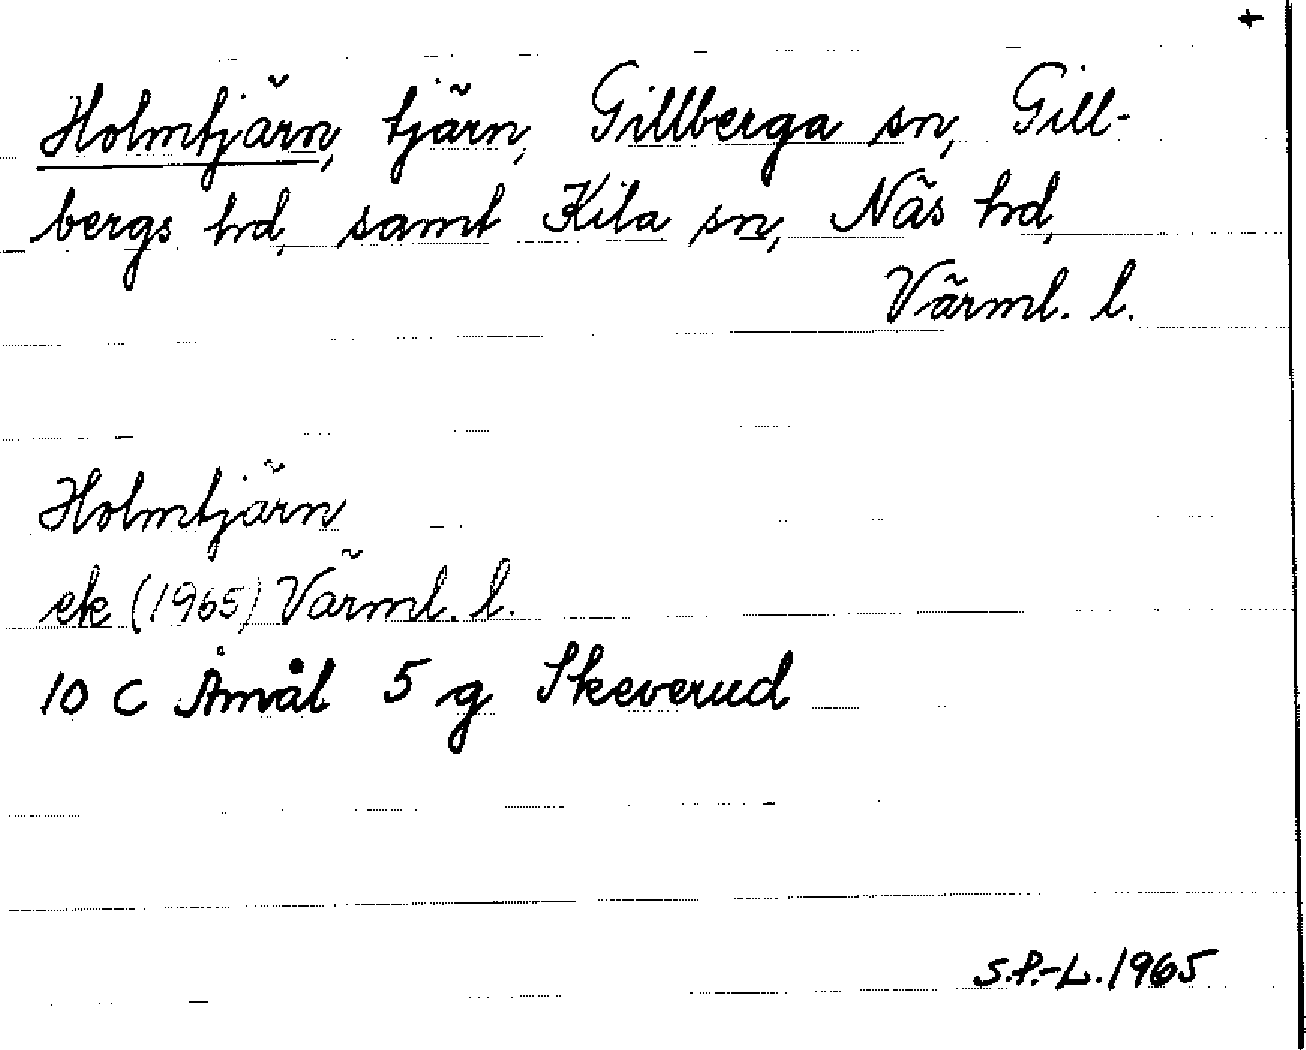 +
Holmtjärn, tjärn, Gillberga sn, Gill-
bergs hd, samt Kila sn, Näs hd,
Värml. l.
Holmtjärn
ek (1965) Värml. l.
10 C Åmål 5 g Skeverud
S.P.-L. 1965